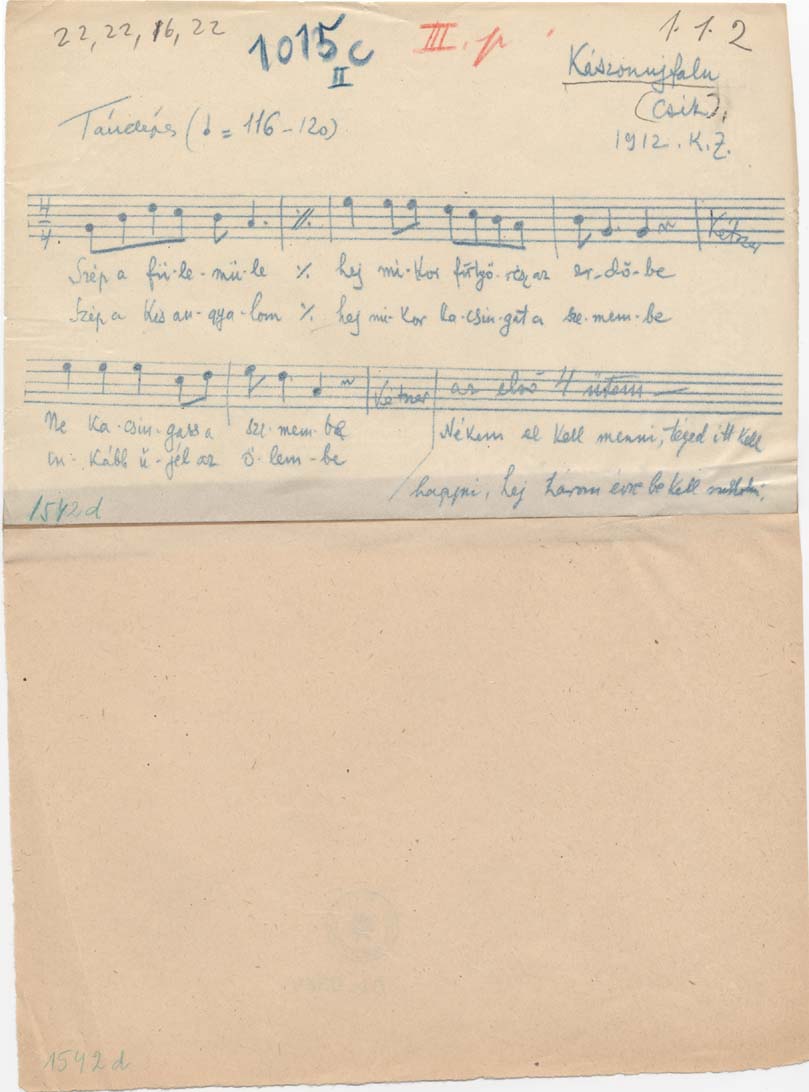 22, 22, 16, 22
1015c
II
III. p
1. 1. 2
Kászonujfalu
(Csik),
1912. K. Z.
(♩ = 116-120)
4
4
Kétszer
Szép a fü-le-mü-le ٪ hej mi-kor fütyö-rész az er-dő-be
Szép a kis an-gya-lom ٪ hej mi-kor ka-csin-gat a sze-mem-be
Kétszer az első 4 ütem
Ne ka-csin-gass a sze-mem-be
in-kább ü-jél az ö-lem-be
Nékem el kell menni, téged itt kell
hagyni, hej három évre be kell
1542d
1542d